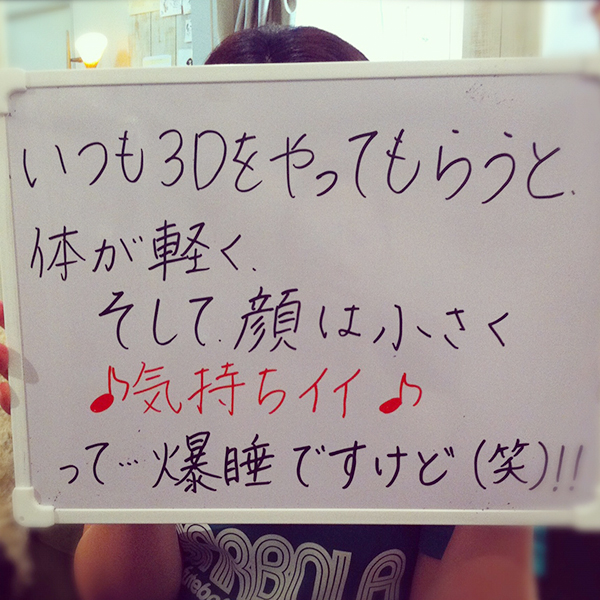 いつも3Dをやってもらうと、
体が軽く、
そして、顔は小さく
♪気持ちイイ♪
って…爆睡ですけど(笑)!!